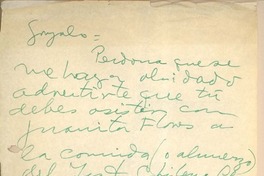 Gonzalo =
Perdona que se
me haya olvidado
advertirte que tú
debes asistir con
Juanita Flores a
la comida (o almuerzo)
del